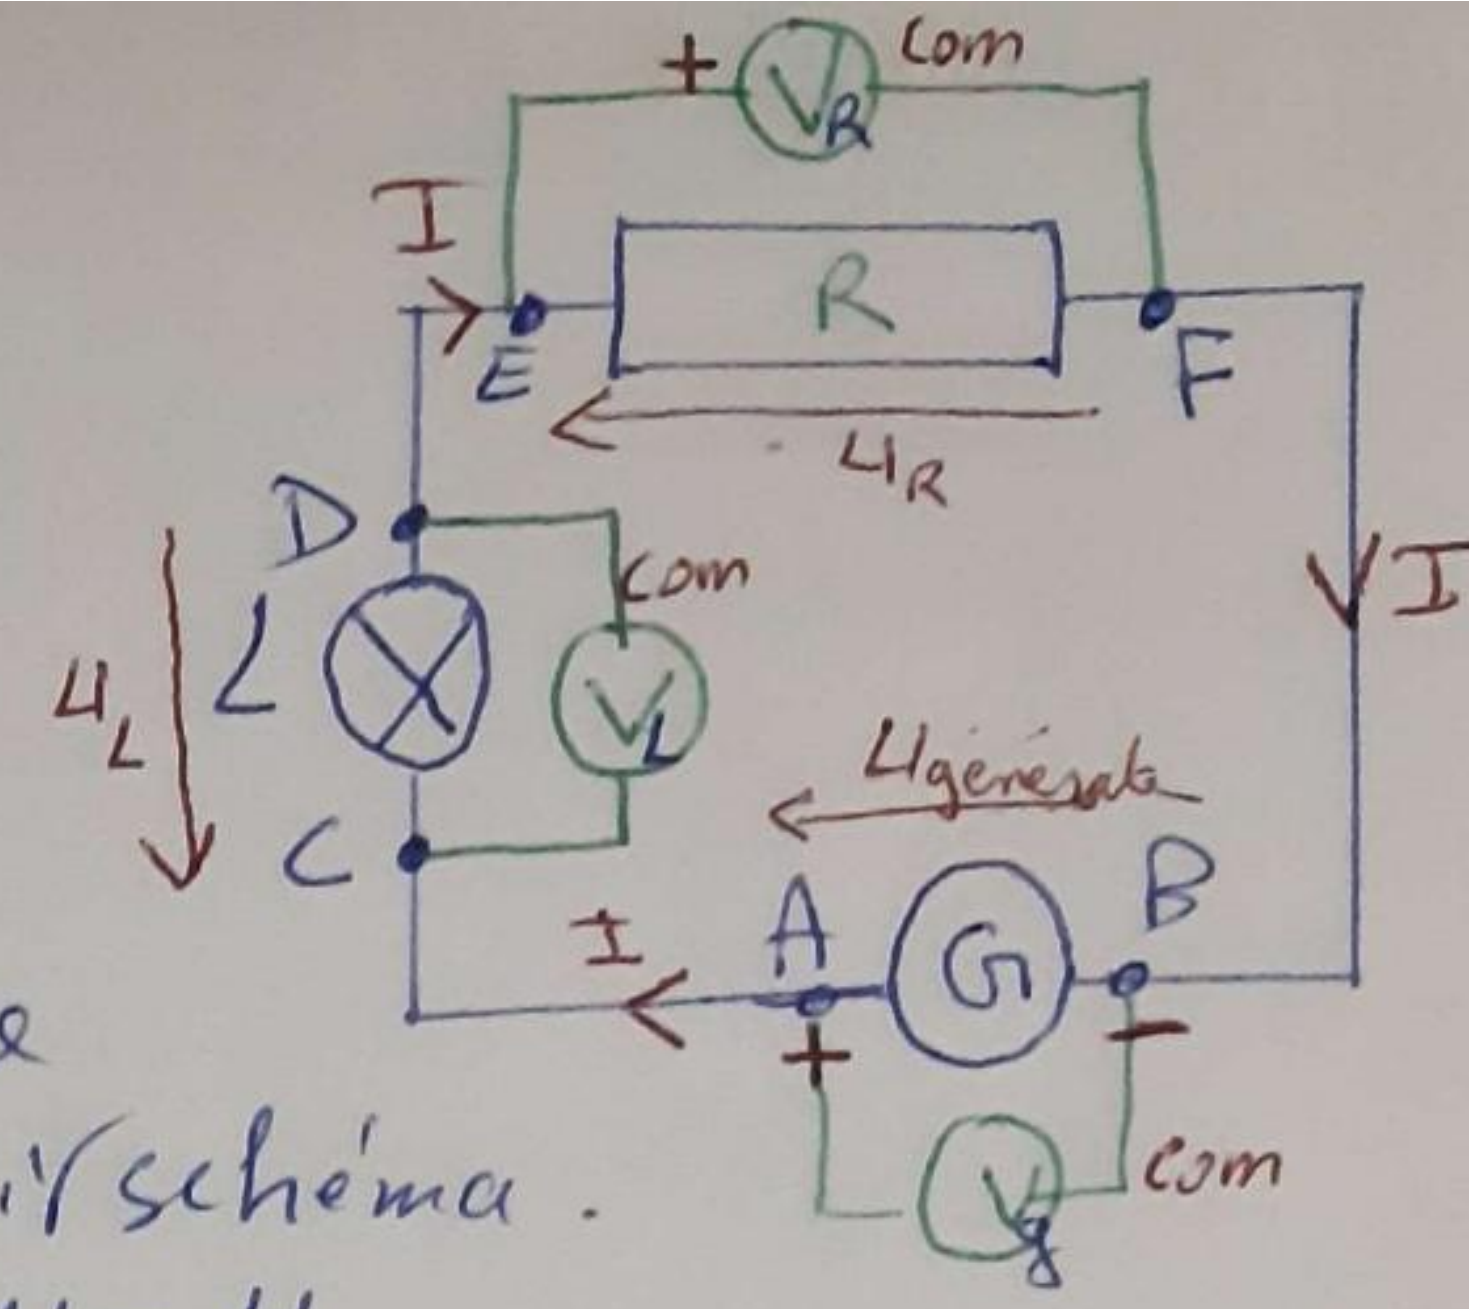 + V_R Com
I
E R F
U_R
D
Com
I
U_L L V_L
U générate
C
A B
I G
+ -
Com
V_g
schéma.